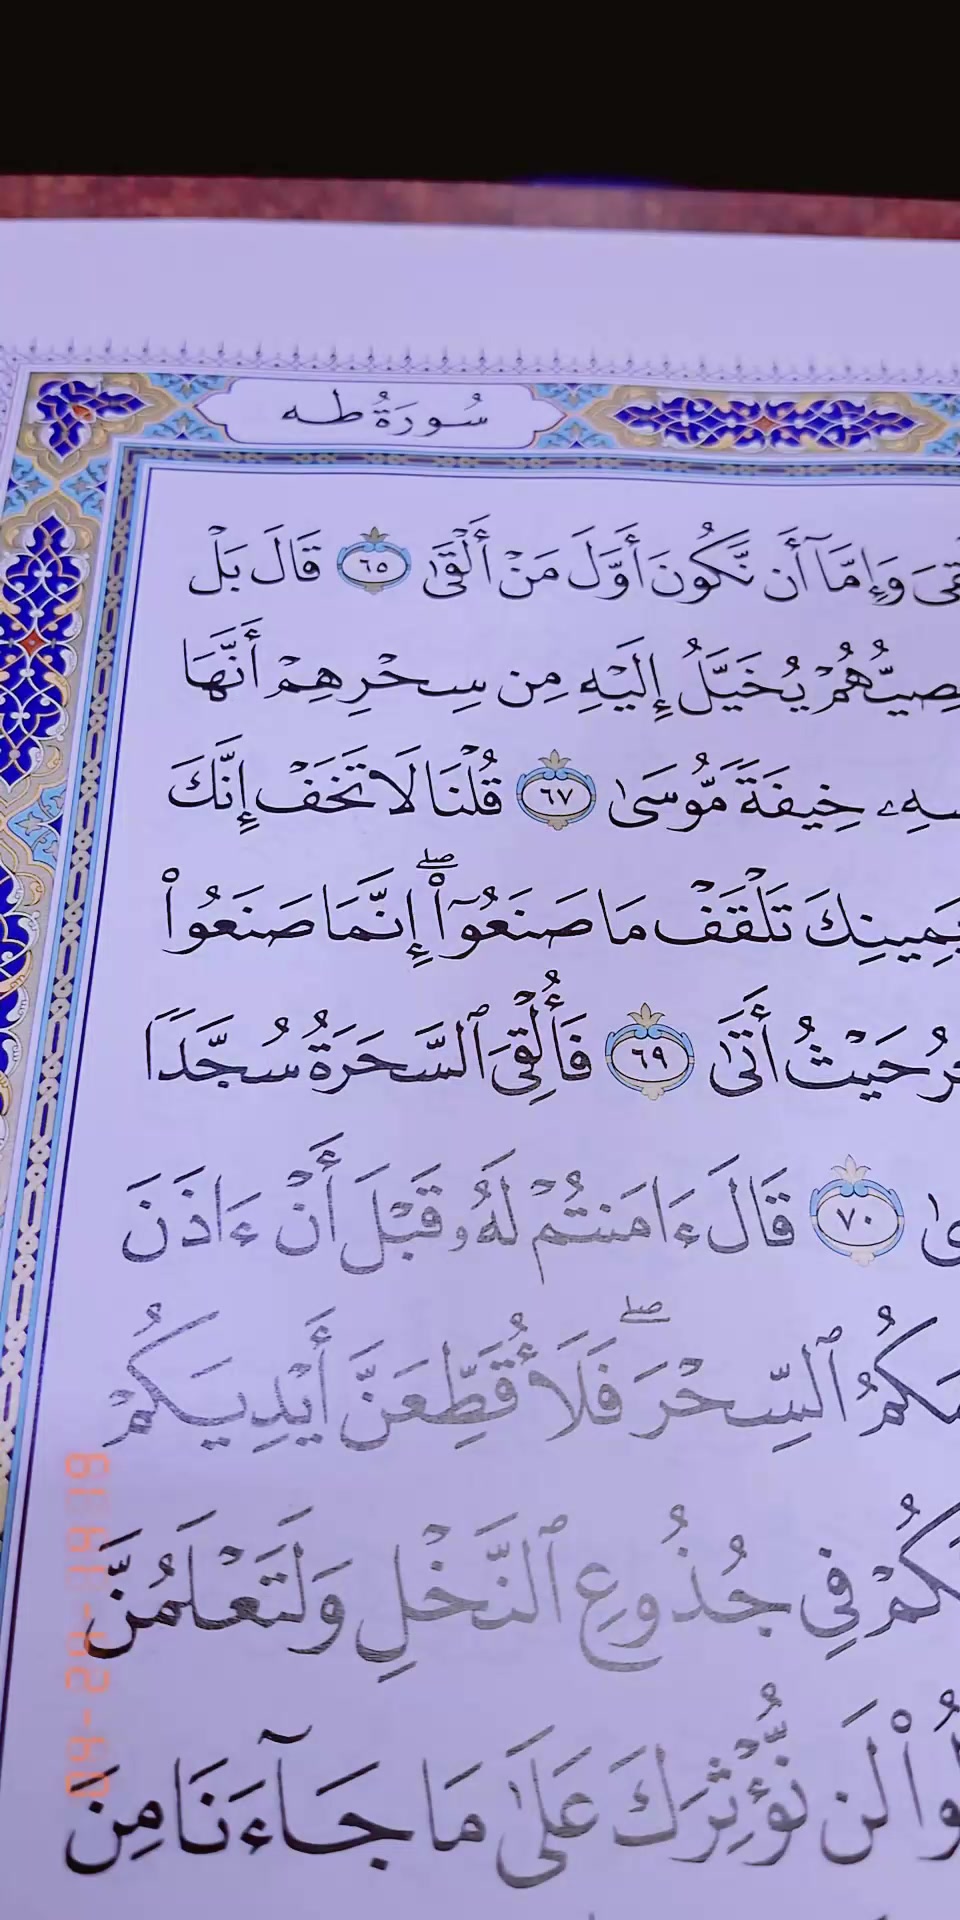 سُورَةُ طه
وَإِمَّآ أَن نَّكُونَ أَوَّلَ مَنْ أَلْقَىٰ ٦٥ قَالَ بَلْ
يُخَيَّلُ إِلَيْهِ مِن سِحْرِهِمْ أَنَّهَا
خِيفَةً مُّوسَىٰ ٦٧ قُلْنَا لَا تَخَفْ إِنَّكَ
يَمِينِكَ تَلْقَفْ مَا صَنَعُوٓا۟ ۖ إِنَّمَا صَنَعُوا۟
حَيْثُ أَتَىٰ ٦٩ فَأُلْقِىَ ٱلسَّحَرَةُ سُجَّدًا
٧٠ قَالَ ءَامَنتُمْ لَهُۥ قَبْلَ أَنْ ءَاذَنَ
ٱلسِّحْرَ ۖ فَلَأُقَطِّعَنَّ أَيْدِيَكُمْ
فِى جُذُوعِ ٱلنَّخْلِ وَلَتَعْلَمُنَّ
لَن نُّؤْثِرَكَ عَلَىٰ مَا جَآءَنَا مِنَ